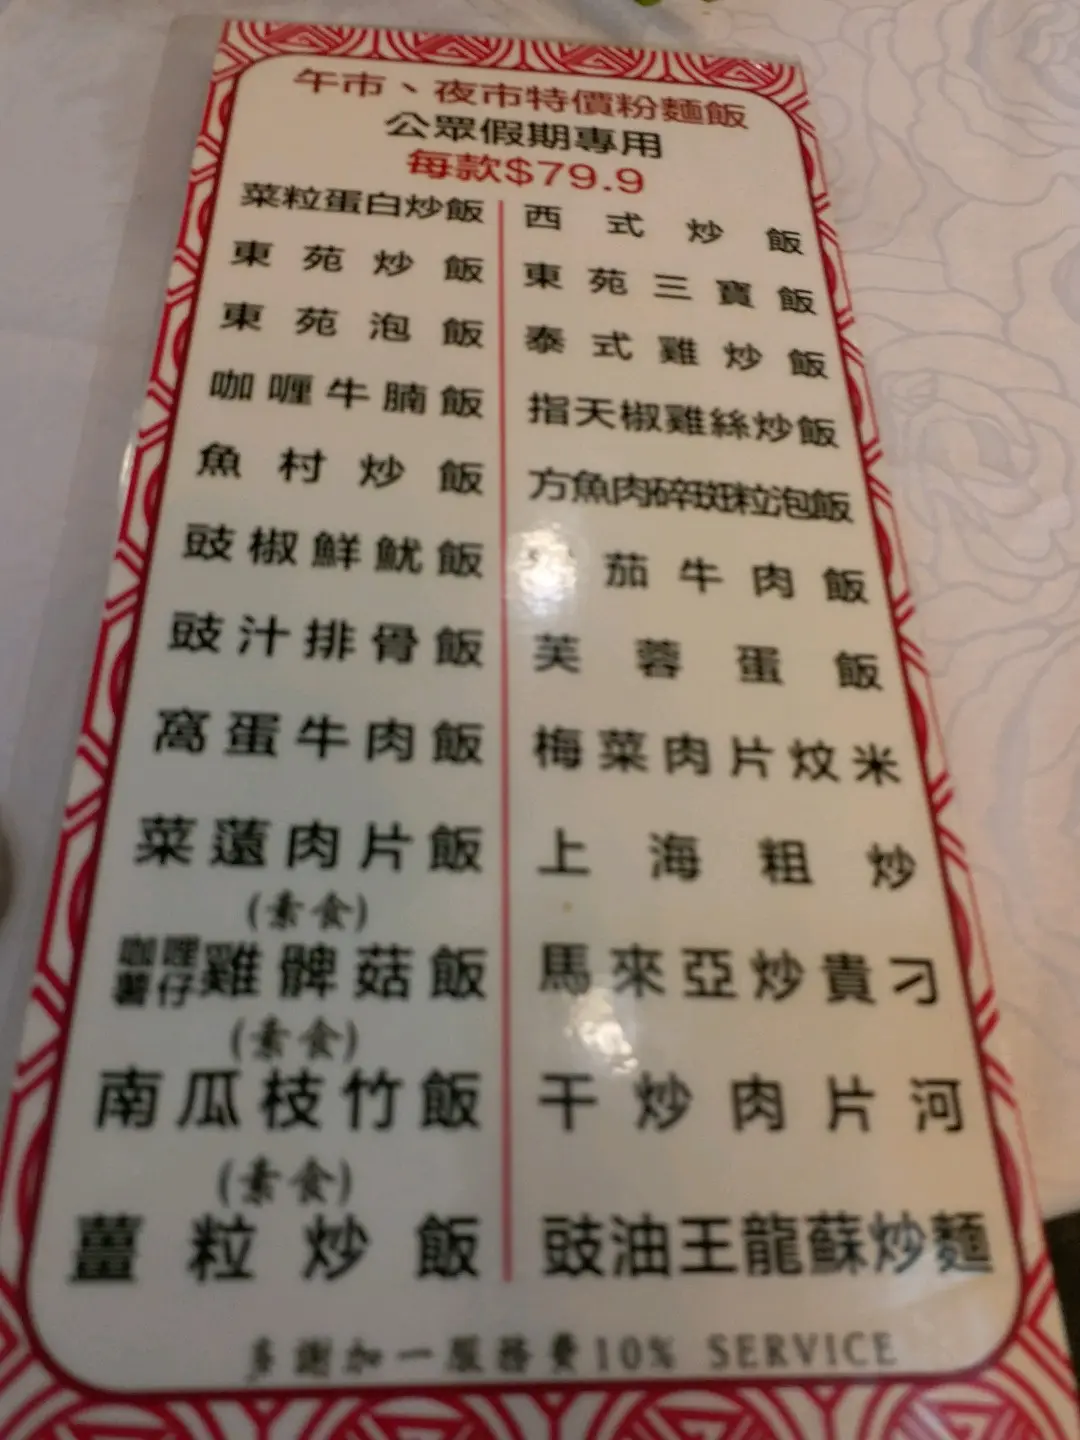 午市、夜市特價粉麵飯
公眾假期專用
每款$79.9
菜粒蛋白炒飯
東苑炒飯
東苑泡飯
咖喱牛腩飯
魚村炒飯
豉椒鮮魷飯
豉汁排骨飯
窩蛋牛肉飯
菜薳肉片飯
(素食)
咖哩薯仔雞髀菇飯
(素食)
南瓜枝竹飯
(素食)
薑粒炒飯
西式炒飯
東苑三寶飯
泰式雞炒飯
指天椒雞絲炒飯
方魚肉碎斑粒泡飯
茄牛肉飯
芙蓉蛋飯
梅菜肉片炆米
上海粗炒
馬來亞炒貴刁
干炒肉片河
豉油王龍蘇炒麵
多謝加一服務費10% SERVICE